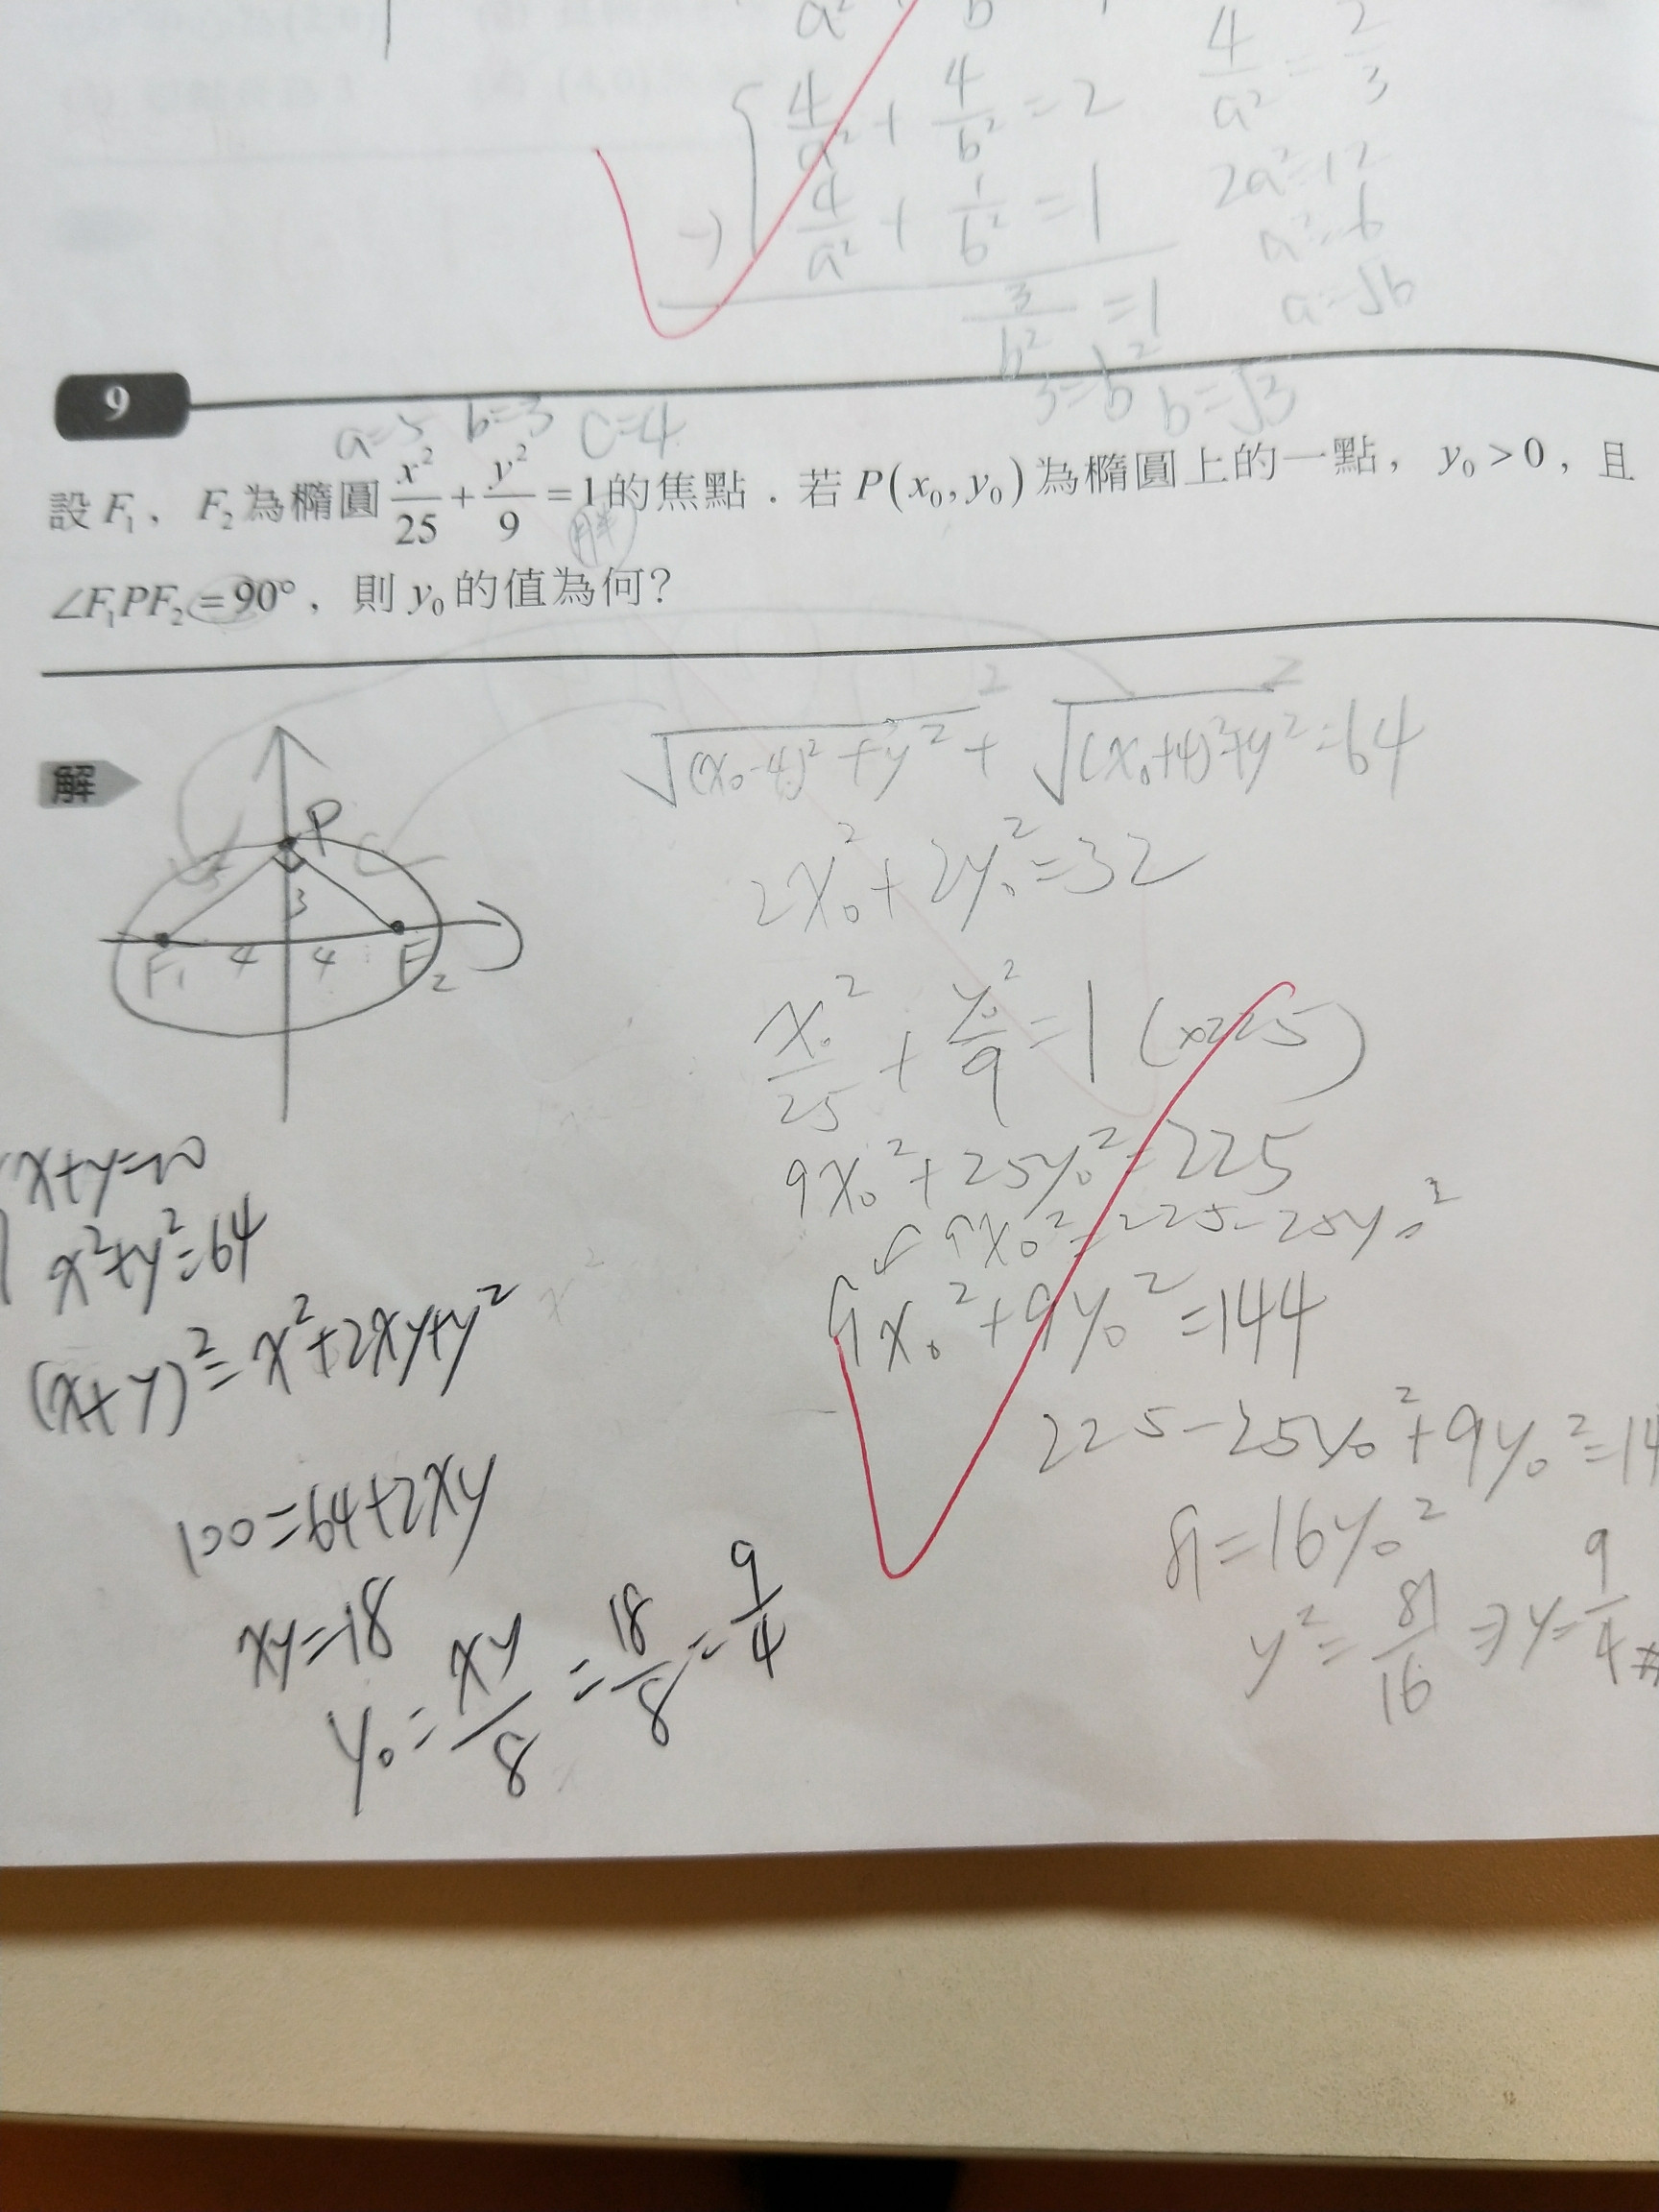 a² b
4/a² + 4/b² = 2
-) 4/a² + 1/b² = 1
3/b² = 1
3=b² b=√3
4/a² = 2/3
2a²=12
a²=6
a=√6
9
a=5 b=3 c=4
設 F₁，F₂為橢圓 x²/25 + y²/9 = 1的焦點．若 P(x₀, y₀)為橢圓上的一點，y₀ > 0，且
∠F₁PF₂ = 90°，則 y₀ 的值為何？
解
P
3
F₁ 4 4 F₂
√((x₀-4)²+y²)² + √((x₀+4)²+y²)² = 64
2x₀² + 2y₀² = 32
x₀²/25 + y₀²/9 = 1 (×225)
9x₀² + 25y₀² = 225
9x₀² = 225 - 25y₀²
9x₀² + 9y₀² = 144
225 - 25y₀² + 9y₀² = 14
81 = 16y₀²
y² = 81/16 ⇒ y = 9/4 #
x+y=10
x²+y²=64
(x+y)² = x²+2xy+y²
100=64+2xy
xy=18
y₀ = xy/8 = 18/8 = 9/4